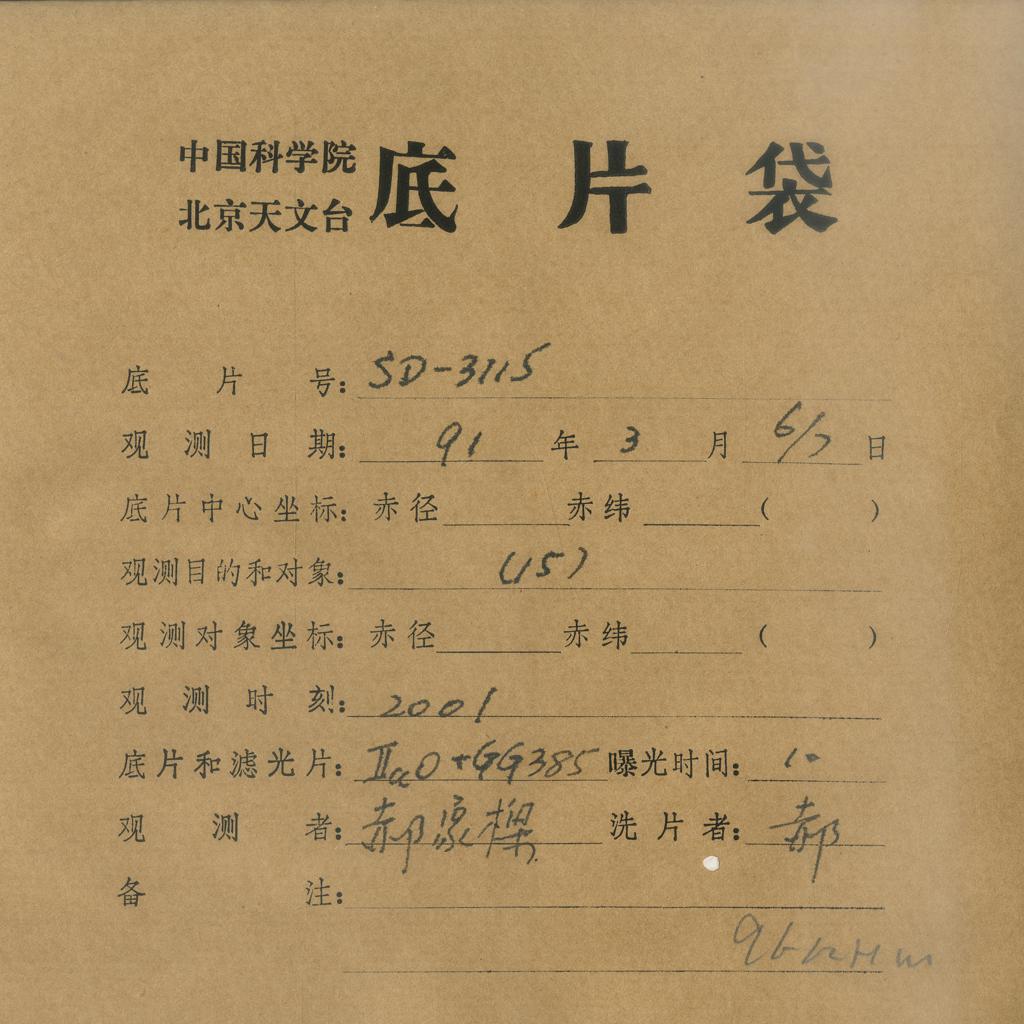 中国科学院
北京天文台
底片袋
底片号：SD-3115
观测日期：91年3月6/7日
底片中心坐标：赤径 赤纬 ( )
观测目的和对象：(15)
观测对象坐标：赤径 赤纬 ( )
观测时刻：2001
底片和滤光片：ⅡaO+GG385 曝光时间：10
观测者：郝家樑 洗片者：郝
备注：